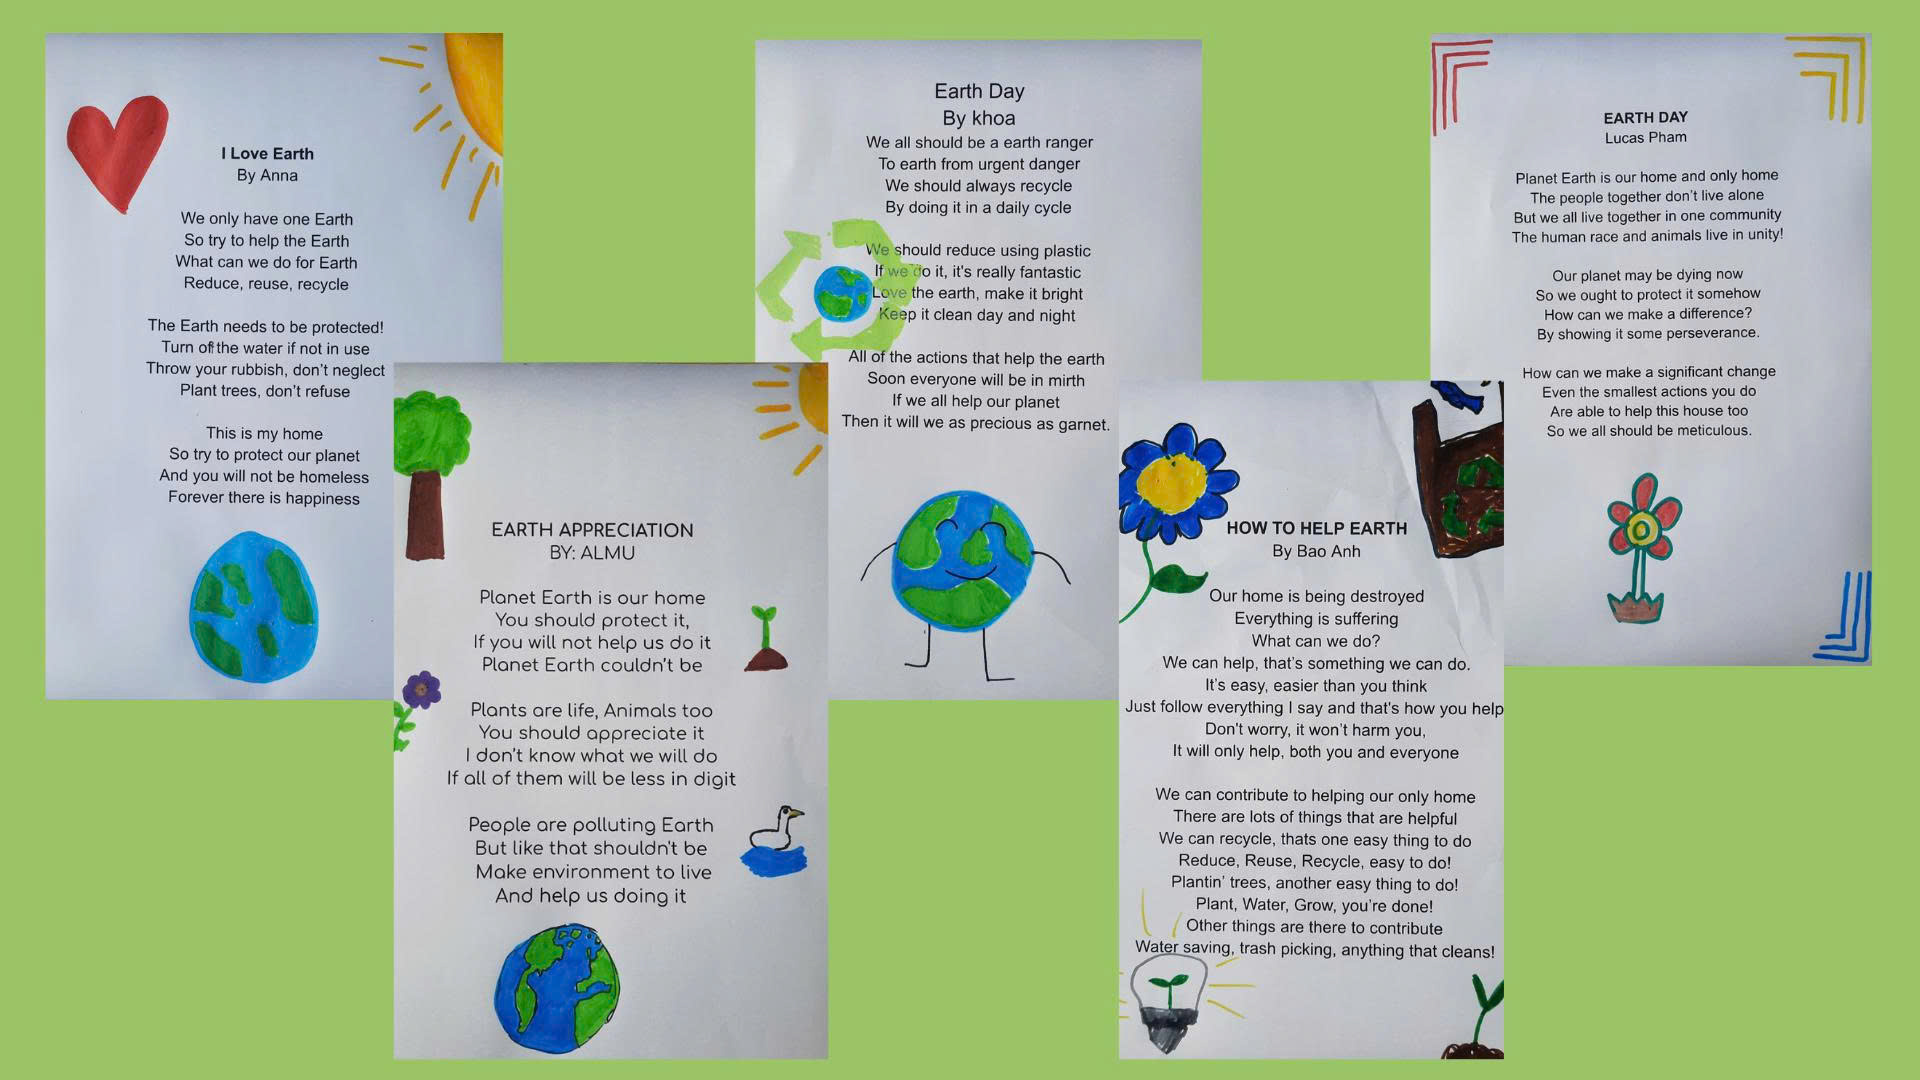 I Love Earth
By Anna
We only have one Earth
So try to help the Earth
What can we do for Earth
Reduce, reuse, recycle
The Earth needs to be protected!
Turn off the water if not in use
Throw your rubbish, don't neglect
Plant trees, don't refuse
This is my home
So try to protect our planet
And you will not be homeless
Forever there is happiness
EARTH APPRECIATION
BY: ALMU
Planet Earth is our home
You should protect it,
If you will not help us do it
Planet Earth couldn't be
Plants are life, Animals too
You should appreciate it
I don't know what we will do
If all of them will be less in digit
People are polluting Earth
But like that shouldn't be
Make environment to live
And help us doing it
Earth Day
By khoa
We all should be a earth ranger
To earth from urgent danger
We should always recycle
By doing it in a daily cycle
We should reduce using plastic
If we do it, it's really fantastic
Love the earth, make it bright
Keep it clean day and night
All of the actions that help the earth
Soon everyone will be in mirth
If we all help our planet
Then it will we as precious as garnet.
HOW TO HELP EARTH
By Bao Anh
Our home is being destroyed
Everything is suffering
What can we do?
We can help, that's something we can do.
It's easy, easier than you think
Just follow everything I say and that's how you help
Don't worry, it won't harm you,
It will only help, both you and everyone
We can contribute to helping our only home
There are lots of things that are helpful
We can recycle, thats one easy thing to do
Reduce, Reuse, Recycle, easy to do!
Plantin' trees, another easy thing to do!
Plant, Water, Grow, you're done!
Other things are there to contribute
Water saving, trash picking, anything that cleans!
EARTH DAY
Lucas Pham
Planet Earth is our home and only home
The people together don't live alone
But we all live together in one community
The human race and animals live in unity!
Our planet may be dying now
So we ought to protect it somehow
How can we make a difference?
By showing it some perseverance.
How can we make a significant change
Even the smallest actions you do
Are able to help this house too
So we all should be meticulous.